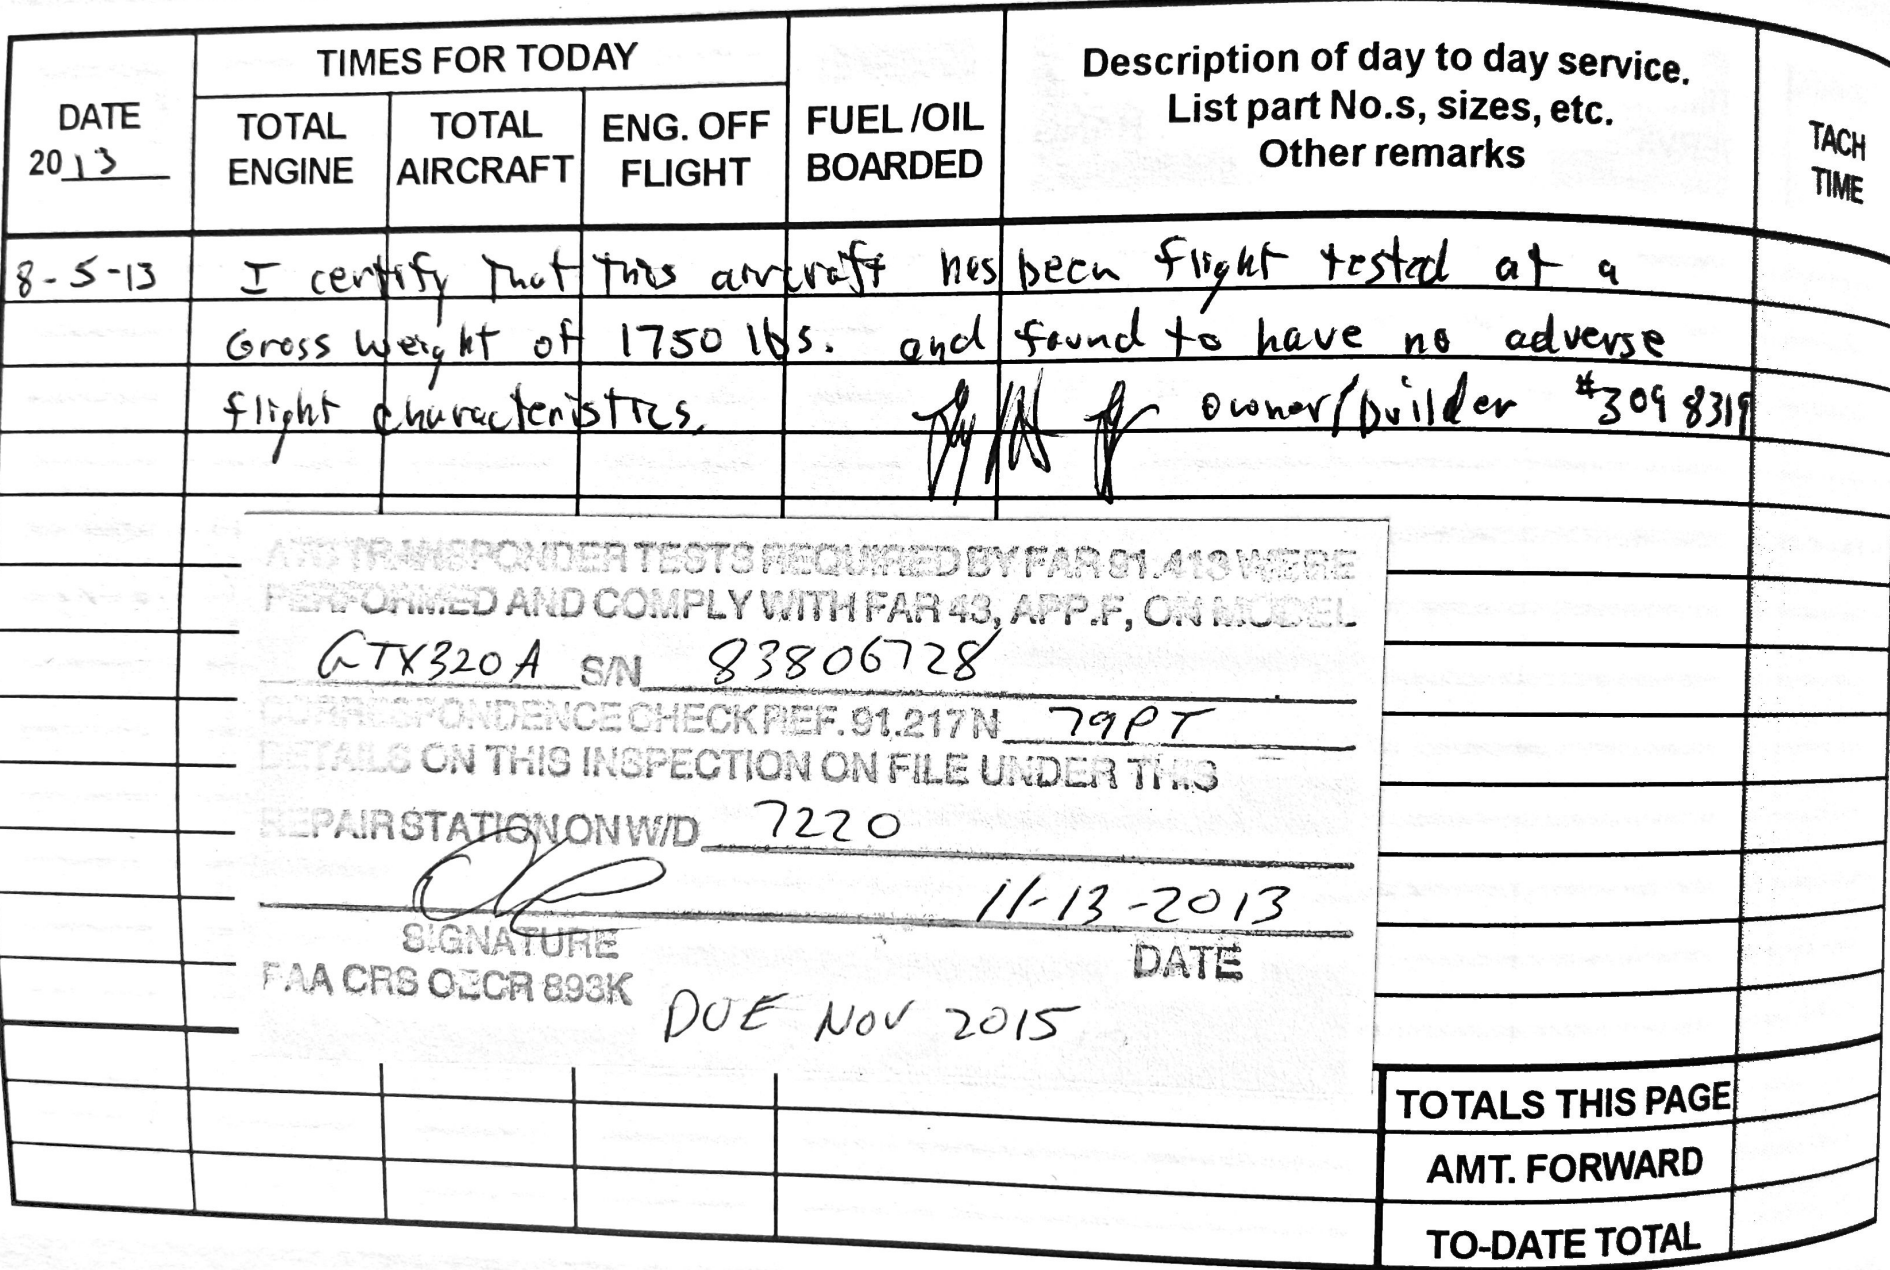 TIMES FOR TODAY
DATE
2013
TOTAL ENGINE
TOTAL AIRCRAFT
ENG. OFF FLIGHT
FUEL /OIL BOARDED
Description of day to day service.
List part No.s, sizes, etc.
Other remarks
TACH TIME
8-5-13 I certify that this aircraft has been flight tested at a
Gross Weight of 1750 lbs. and found to have no adverse
flight characteristics. owner/builder #3098319
ATC TRANSPONDER TESTS REQUIRED BY FAR 91.413 WERE
PERFORMED AND COMPLY WITH FAR 43, APP.F, ON MODEL
GTX320A S/N 83806728
CORRESPONDENCE CHECK REF. 91.217 N 79PT
DETAILS ON THIS INSPECTION ON FILE UNDER THIS
REPAIR STATION ON W/D 7220
11-13-2013
SIGNATURE DATE
FAA CRS OECR 893K
DUE NOV 2015
TOTALS THIS PAGE
AMT. FORWARD
TO-DATE TOTAL